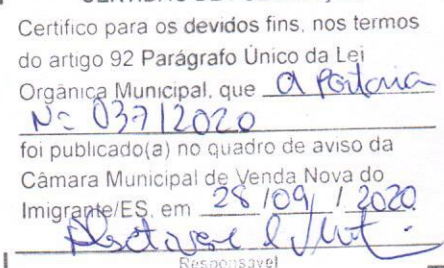 Certifico para os devidos fins, nos termos
do artigo 92 Parágrafo Único da Lei
Orgânica Municipal, que a Portaria
Nº 037/2020
foi publicado(a) no quadro de aviso da
Câmara Municipal de Venda Nova do
Imigrante/ES, em 28/09/2020
Responsável